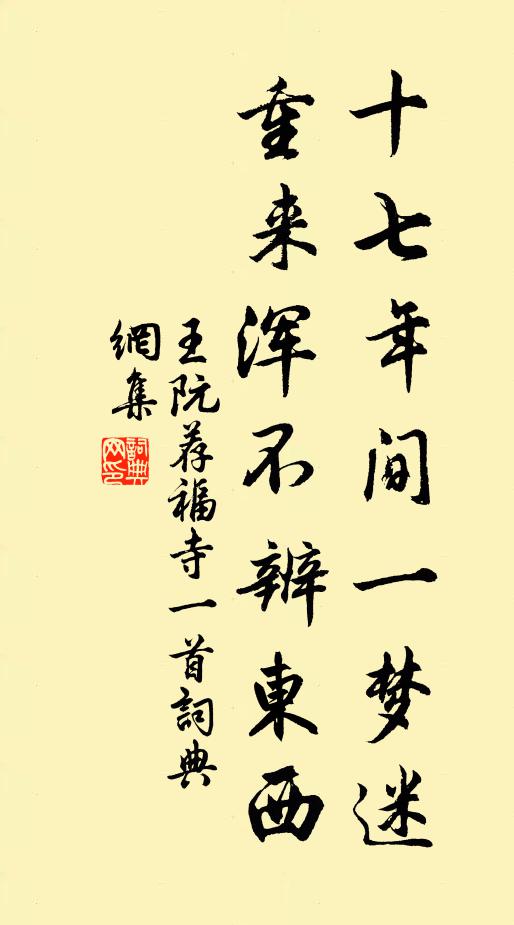 十七年间一梦迷
重来浑不辨東西
王阮荐福寺一首詞典
網集
詞典网印